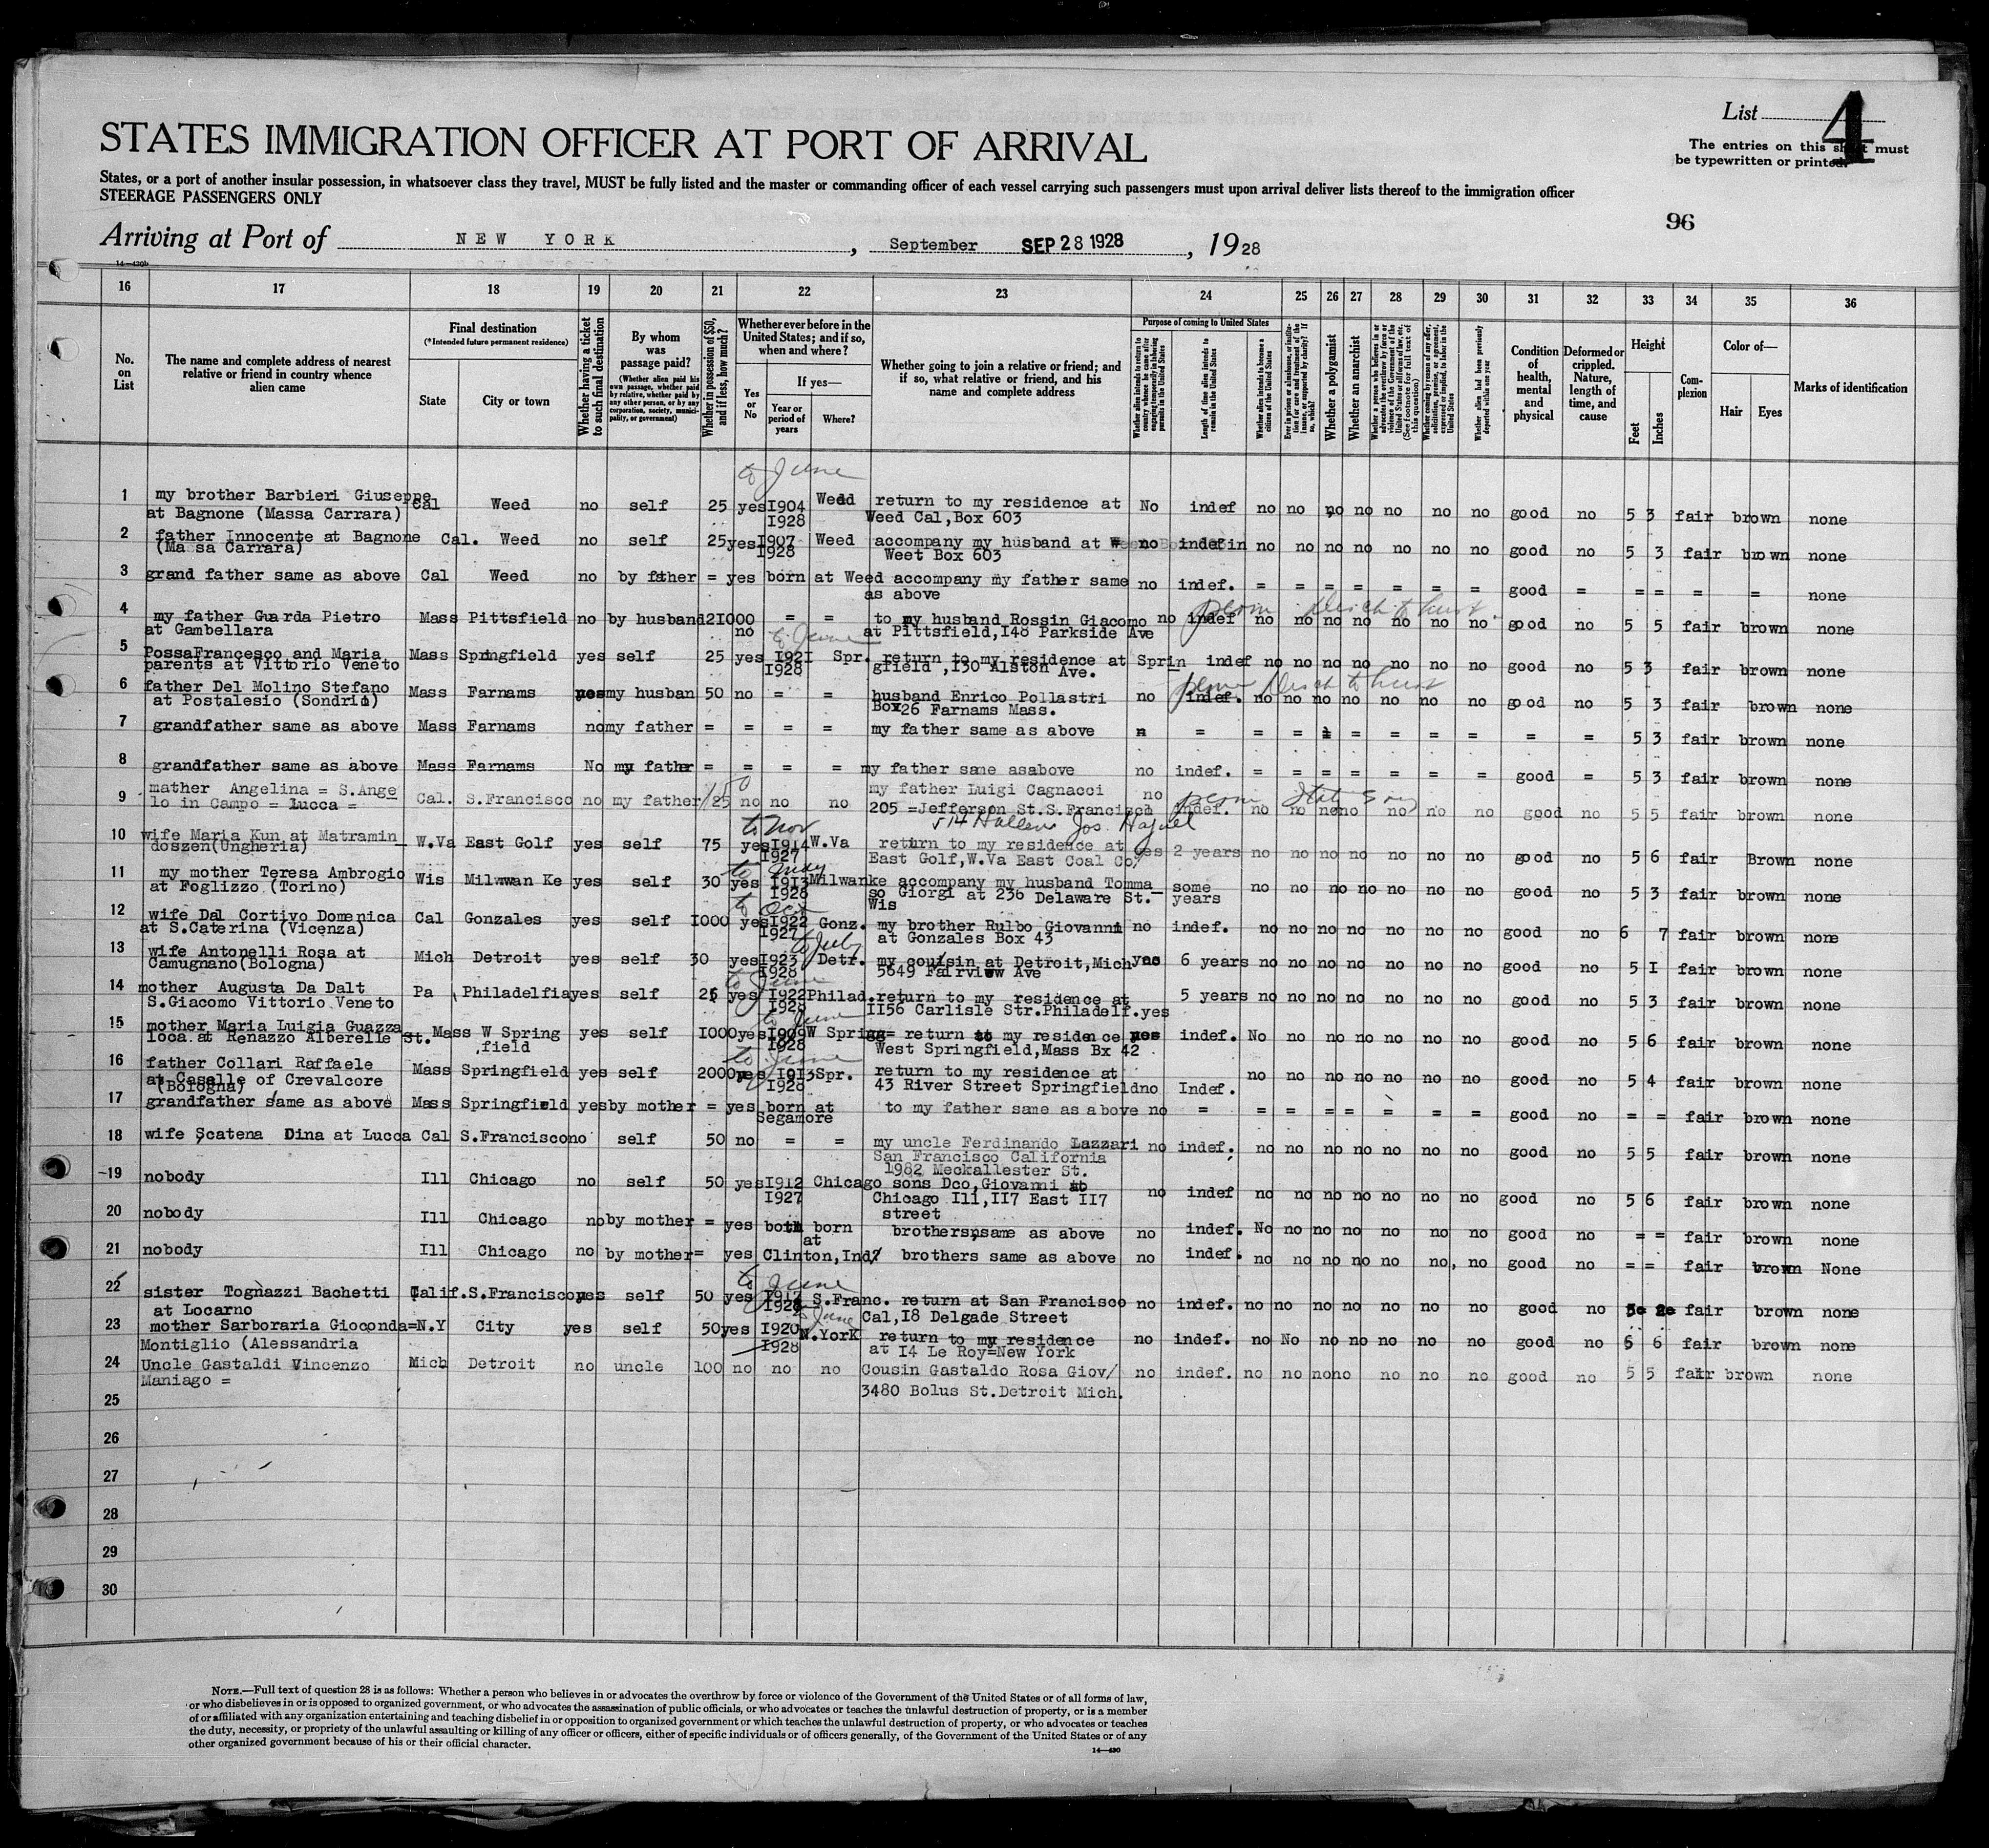 List 4
STATES IMMIGRATION OFFICER AT PORT OF ARRIVAL
The entries on this sheet must
be typewritten or printed.
States, or a port of another insular possession, in whatsoever class they travel, MUST be fully listed and the master or commanding officer of each vessel carrying such passengers must upon arrival deliver lists thereof to the immigration officer
STEERAGE PASSENGERS ONLY
96
Arriving at Port of NEW YORK, September SEP 28 1928, 1928
14—430b
16 17 18 19 20 21 22 23 24 25 26 27 28 29 30 31 32 33 34 35 36
No. on List
The name and complete address of nearest relative or friend in country whence alien came
Final destination
(*Intended future permanent residence)
State
City or town
Whether having a ticket to such final destination
By whom was passage paid?
(Whether alien paid his own passage, whether paid by relative, whether paid by any other person, or by any corporation, society, municipality, or government)
Whether in possession of $50, and if less, how much?
Whether ever before in the United States; and if so, when and where?
Yes or No
If yes—
Year or period of years
Where?
Whether going to join a relative or friend; and if so, what relative or friend, and his name and complete address
Purpose of coming to United States
Whether alien intends to return to country whence he came after engaging temporarily in laboring pursuits in the United States
Length of time alien intends to remain in the United States
Whether alien intends to become a citizen of the United States
Ever in prison or almshouse, or institution for care and treatment of the insane, or supported by charity? If so, which?
Whether a polygamist
Whether an anarchist
Whether a person who believes in or advocates the overthrow by force or violence of the Government of the United States or all forms of law, etc. (See footnote for full text of this question)
Whether coming by reason of any offer, solicitation, promise, or agreement, expressed or implied, to labor in the United States
Whether alien had been previously deported within one year
Condition of health, mental and physical
Deformed or crippled. Nature, length of time, and cause
Height
Feet
Inches
Complexion
Color of—
Hair
Eyes
Marks of identification
to June
1 my brother Barbieri Giuseppe Cal Weed no self 25 yes 1904 Wedd return to my residence at No indef no no no no no no no good no 5 3 fair brown none
at Bagnone (Massa Carrara) 1928 Weed Cal, Box 603
2 father Innocente at Bagnone Cal. Weed no self 25 yes 1907 Weed accompany my husband at no indefin no no no no no no no good no 5 3 fair brown none
(Ma sa Carrara) 1928 Weet Box 603
3 grand father same as above Cal Weed no by father = yes born at Weed accompany my father same no indef. = = = = = = = good = = = = = none
as above
4 my father Guarda Pietro Mass Pittsfield no by husband 21000 = = to my husband Rossin Giacomo no indef no no no no no no no good no 5 5 fair brown none
at Gambellara no at Pittsfield, 148 Parkside Ave
to June
5 PossaFrancesco and Maria Mass Springfield yes self 25 yes 1921 Spr. return to my residence at Sprin indef no no no no no no no good no 5 3 fair brown none
parents at Vittorio Veneto 1928 gfield, 130 Alston Ave.
6 father Del Molino Stefano Mass Farnams my husban 50 no = = husband Enrico Pollastri no indef. no no no no no no no good no 5 3 fair brown none
at Postalesio (Sondrio) Box26 Farnams Mass.
7 grandfather same as above Mass Farnams no my father = = = = my father same as above = = = = = = = = = 5 3 fair brown none
8 grandfather same as above Mass Farnams No my father = = = = my father same asabove no indef. = = = = = = = good = 5 3 fair brown none
9 mather Angelina = S.Ange Cal. S.Francisco no my father 25 no no no my father Luigi Cagnacci no indef. no no no no no no no good no 5 5 fair brown none
lo in Campo = Lucca = 205 =Jefferson St.S.Francisco
to Nov
10 wife Maria Kun at Matramin_ W.Va East Golf yes self 75 yes 1914 W.Va return to my residence at yes 2 years no no no no no no no good no 5 6 fair Brown none
doszen(Ungheria) 1927 East Golf, W.Va East Coal Co.
11 my mother Teresa Ambrogio Wis Milwwan Ke yes self 30 yes 1913 Milwanke accompany my husband Tomma_ some no no no no no no no good no 5 3 fair brown none
at Foglizzo (Torino) 1928 so Giorgi at 236 Delaware St. years
to Oct Wis
12 wife Dal Cortivo Domenica Cal Gonzales yes self 1000 yes 1922 Gonz. my brother Rulbo Giovanni no indef. no no no no no no no good no 6 7 fair brown none
at S.Caterina (Vicenza) 1927 at Gonzales Box 43
to July
13 wife Antonelli Rosa at Mich Detroit yes self 30 yes 1923 Detr. my cousin at Detroit, Mich 6 years no no no no no no no good no 5 1 fair brown none
Camugnano(Bologna) 1928 5649 Fairview Ave
to June
14 mother Augusta Da Dalt Pa Philadelfia yes self 25 yes 1922 Philad. return to my residence at 5 years no no no no no no no good no 5 3 fair brown none
S.Giacomo Vittorio Veneto 1928 1156 Carlisle Str.Philadelf. yes
to June
15 mother Maria Luigia Guazza_ Mass W Spring yes self 1000 yes 1909 W Spring= return to my residence yes indef. No no no no no no no good no 5 6 fair brown none
loca at Renazzo Alberelle St. field 1928 West Springfield, Mass Bx 42
to June
16 father Collari Raffaele Mass Springfield yes self 2000 yes 1913 Spr. return to my residence at no no no no no no no good no 5 4 fair brown none
at Casalle of Crevalcore 1928 43 River Street Springfield no Indef.
(Bologna)
17 grandfather same as above Mass Springfield yes by mother = yes born at to my father same as above no = = = = = = = = good no = = fair brown none
Segamore
18 wife Scatena Dina at Lucca Cal S.Francisco no self 50 no = = my uncle Ferdinando Lazzari no indef. no no no no no no no good no 5 5 fair brown none
San Francisco California
1982 Meckallester St.
19 nobody Ill Chicago no self 50 yes 1912 Chicago sons Dco, Giovanni at no indef no no no no no no no good no 5 6 fair brown none
1927 Chicago Ill, 117 East 117
street
20 nobody Ill Chicago no by mother = yes both born brothers, same as above no indef. No no no no no no no good no = = fair brown none
at
21 nobody Ill Chicago no by mother= yes Clinton, Ind. brothers same as above no indef. no no no no no no no good no = = fair brown None
to June
22 sister Tognazzi Bachetti Calif. S.Francisco yes self 50 yes 1917 S.Franc. return at San Francisco no indef. no no no no no no no good no fair brown none
at Locarno 1928 Cal, 18 Delgade Street
to June
23 mother Sarboraria Gioconda= N.Y City yes self 50 yes 1920 N.York return to my residence no indef. no No no no no no no good no 5 6 fair brown none
Montiglio (Alessandria 1928 at 14 Le Roy=New York
24 Uncle Gastaldi Vincenzo Mich Detroit no uncle 100 no no no Cousin Gastaldo Rosa Giov/ no indef. no no no no no no no good no 5 5 fair brown none
Maniago = 3480 Bolus St. Detroit Mich.
25
26
27
28
29
30
NOTE.—Full text of question 28 is as follows: Whether a person who believes in or advocates the overthrow by force or violence of the Government of the United States or of all forms of law,
or who disbelieves in or is opposed to organized government, or who advocates the assassination of public officials, or who advocates or teaches the unlawful destruction of property, or is a member
of or affiliated with any organization entertaining and teaching disbelief in or opposition to organized government or which teaches the unlawful destruction of property, or who advocates or teaches
the duty, necessity, or propriety of the unlawful assaulting or killing of any officer or officers, either of specific individuals or of officers generally, of the Government of the United States or of any
other organized government because of his or their official character.
14—430